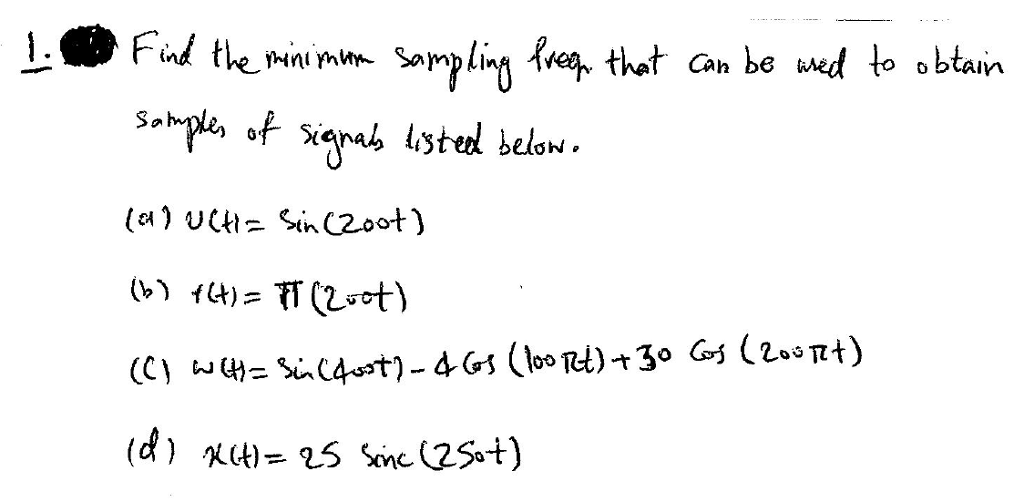 1. Find the minimum sampling freq. that can be used to obtain
samples of signals listed below.
(a) v(t) = Sin(200t)
(b) r(t) = Π(200t)
(c) w(t) = Sin(400t) - 4 Cos (100πt) + 30 Cos (200πt)
(d) x(t) = 25 Sinc (250t)